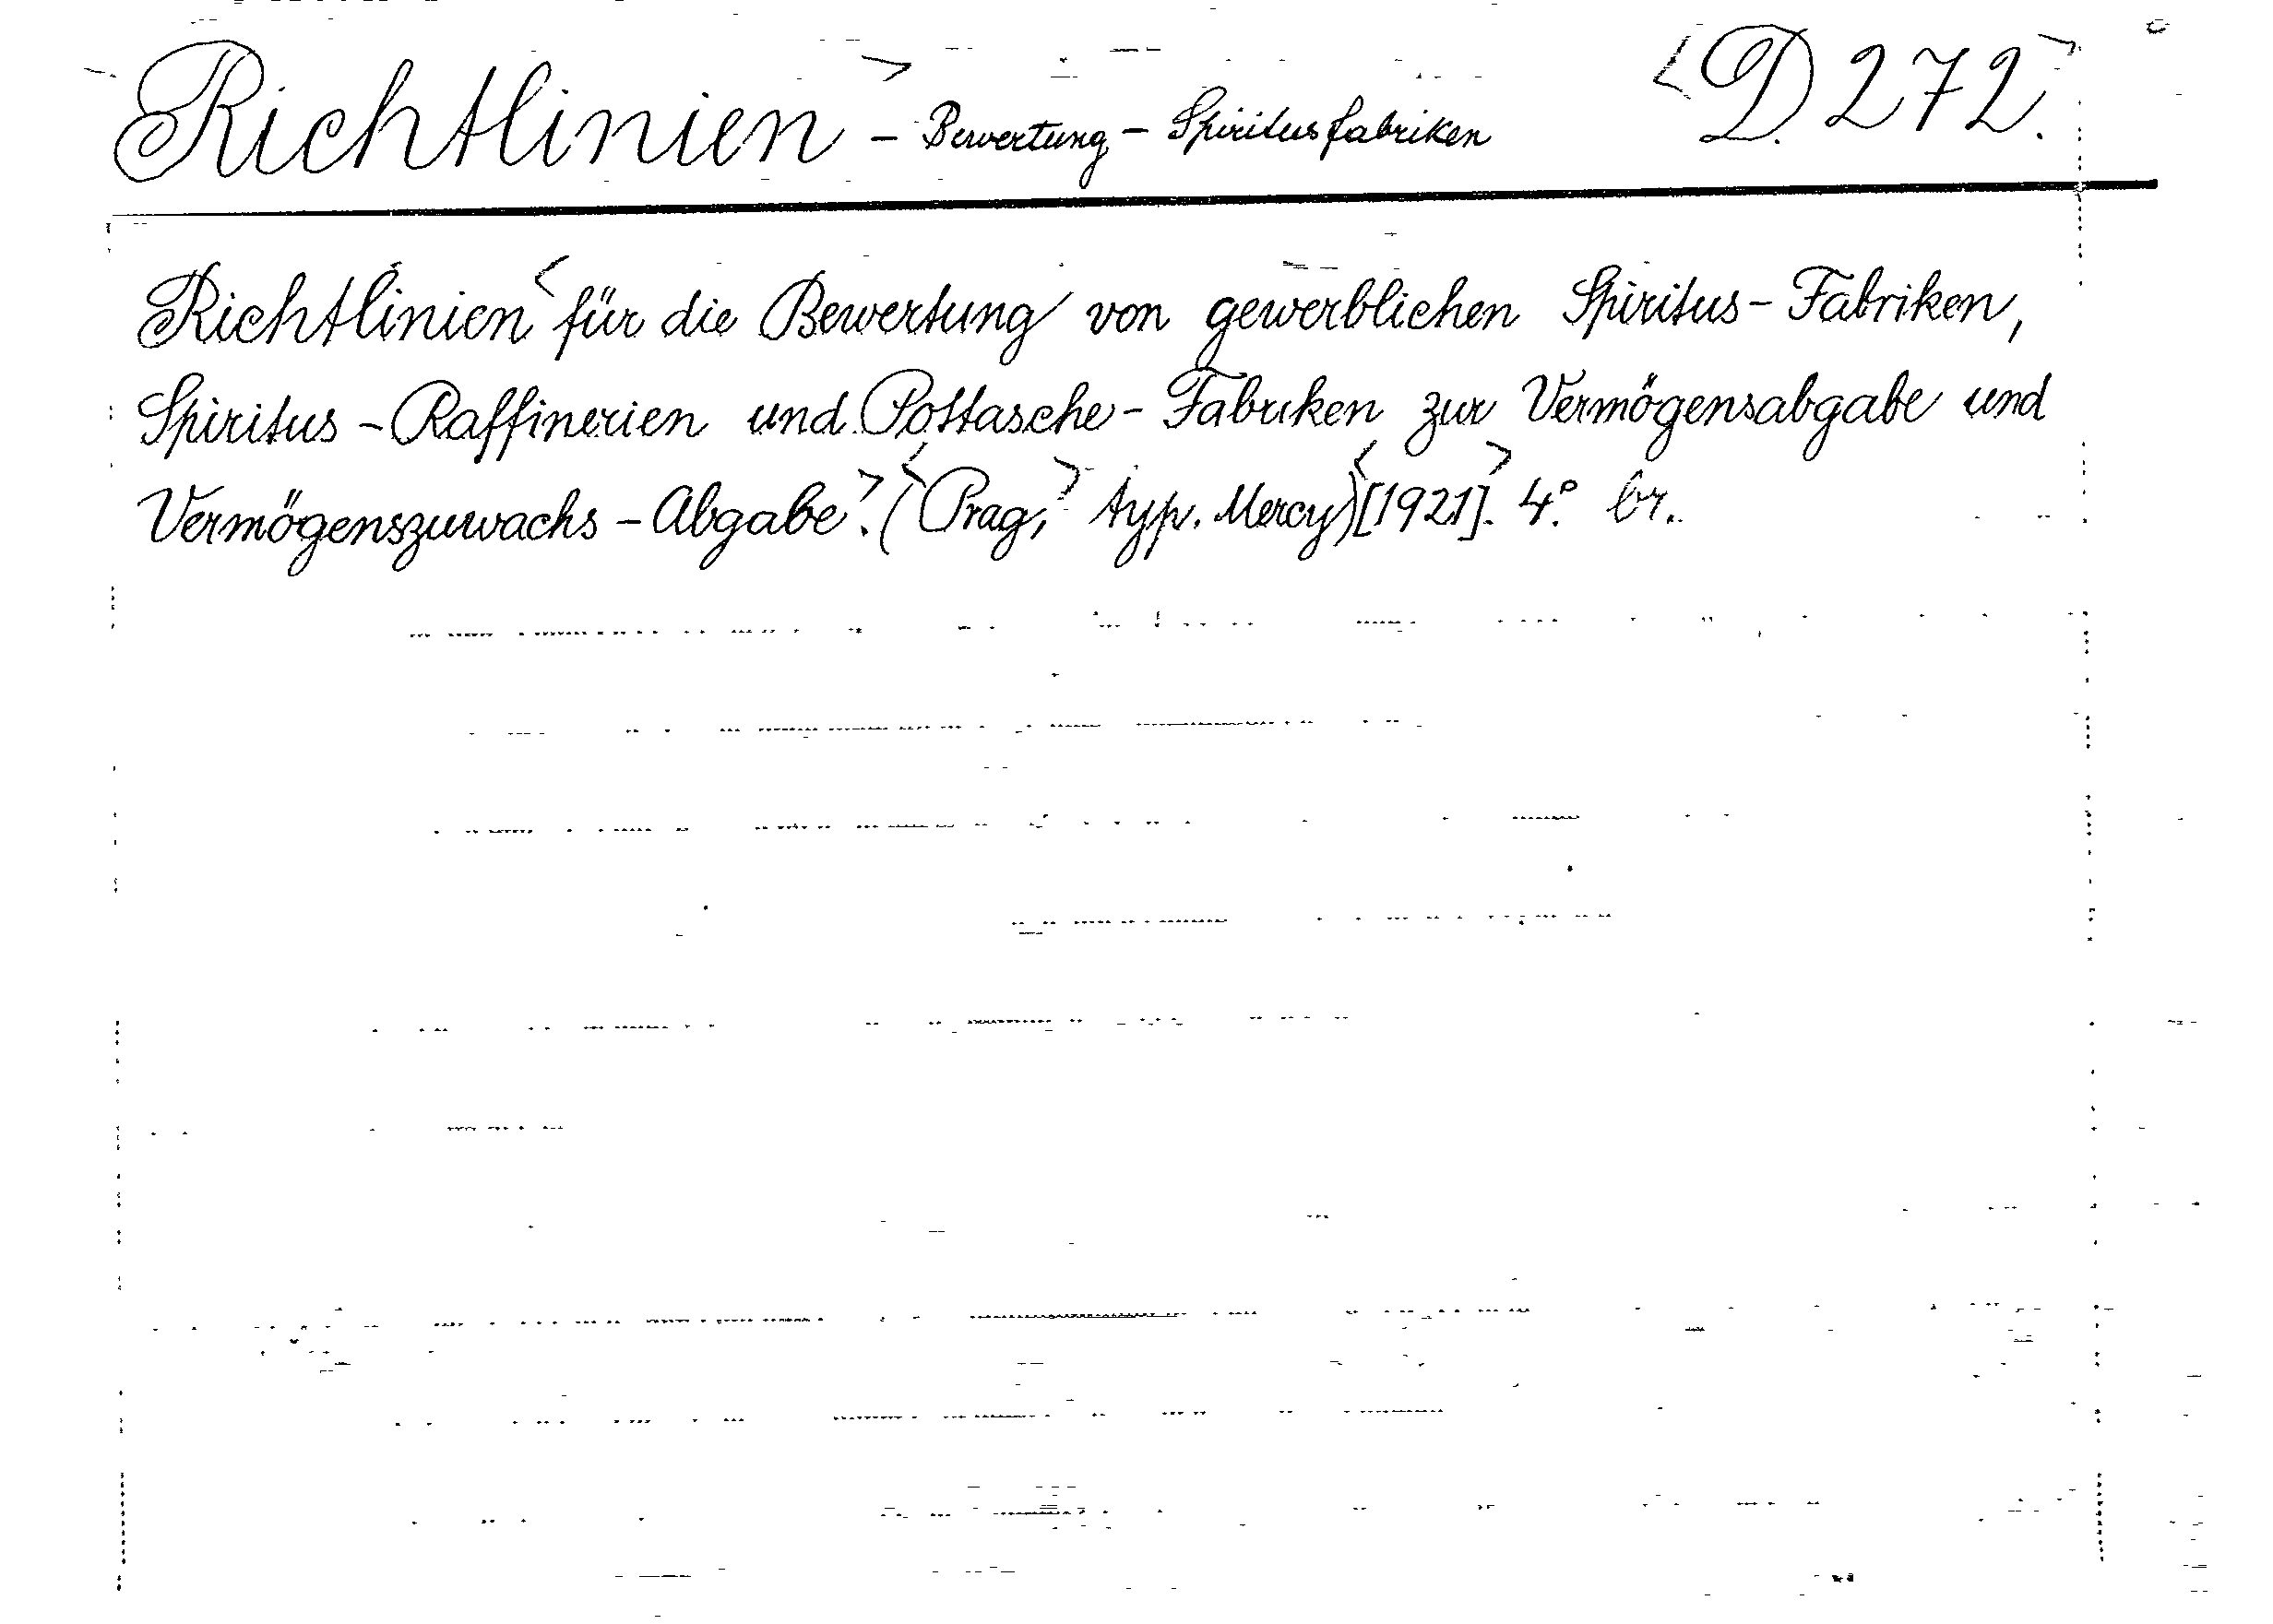 Richtlinien - Bewertung - Spiritusfabriken <D.272.>
Richtlinien für die Bewertung von gewerblichen Spiritus-Fabriken,
Spiritus-Raffinerien und Pottasche-Fabriken zur Vermögensabgabe und
Vermögenszuwachs-Abgabe. (Prag, typ. Mercy) [1921]. 4.° br.